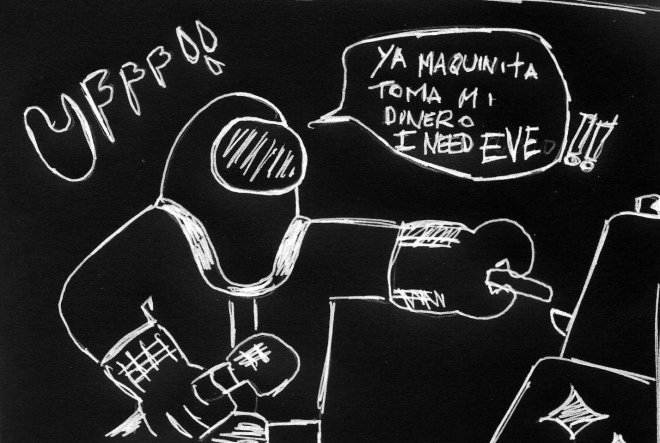 UFFF!!
YA MAQUINITA
TOMA MI
DINERO
I NEED EVE
!!!